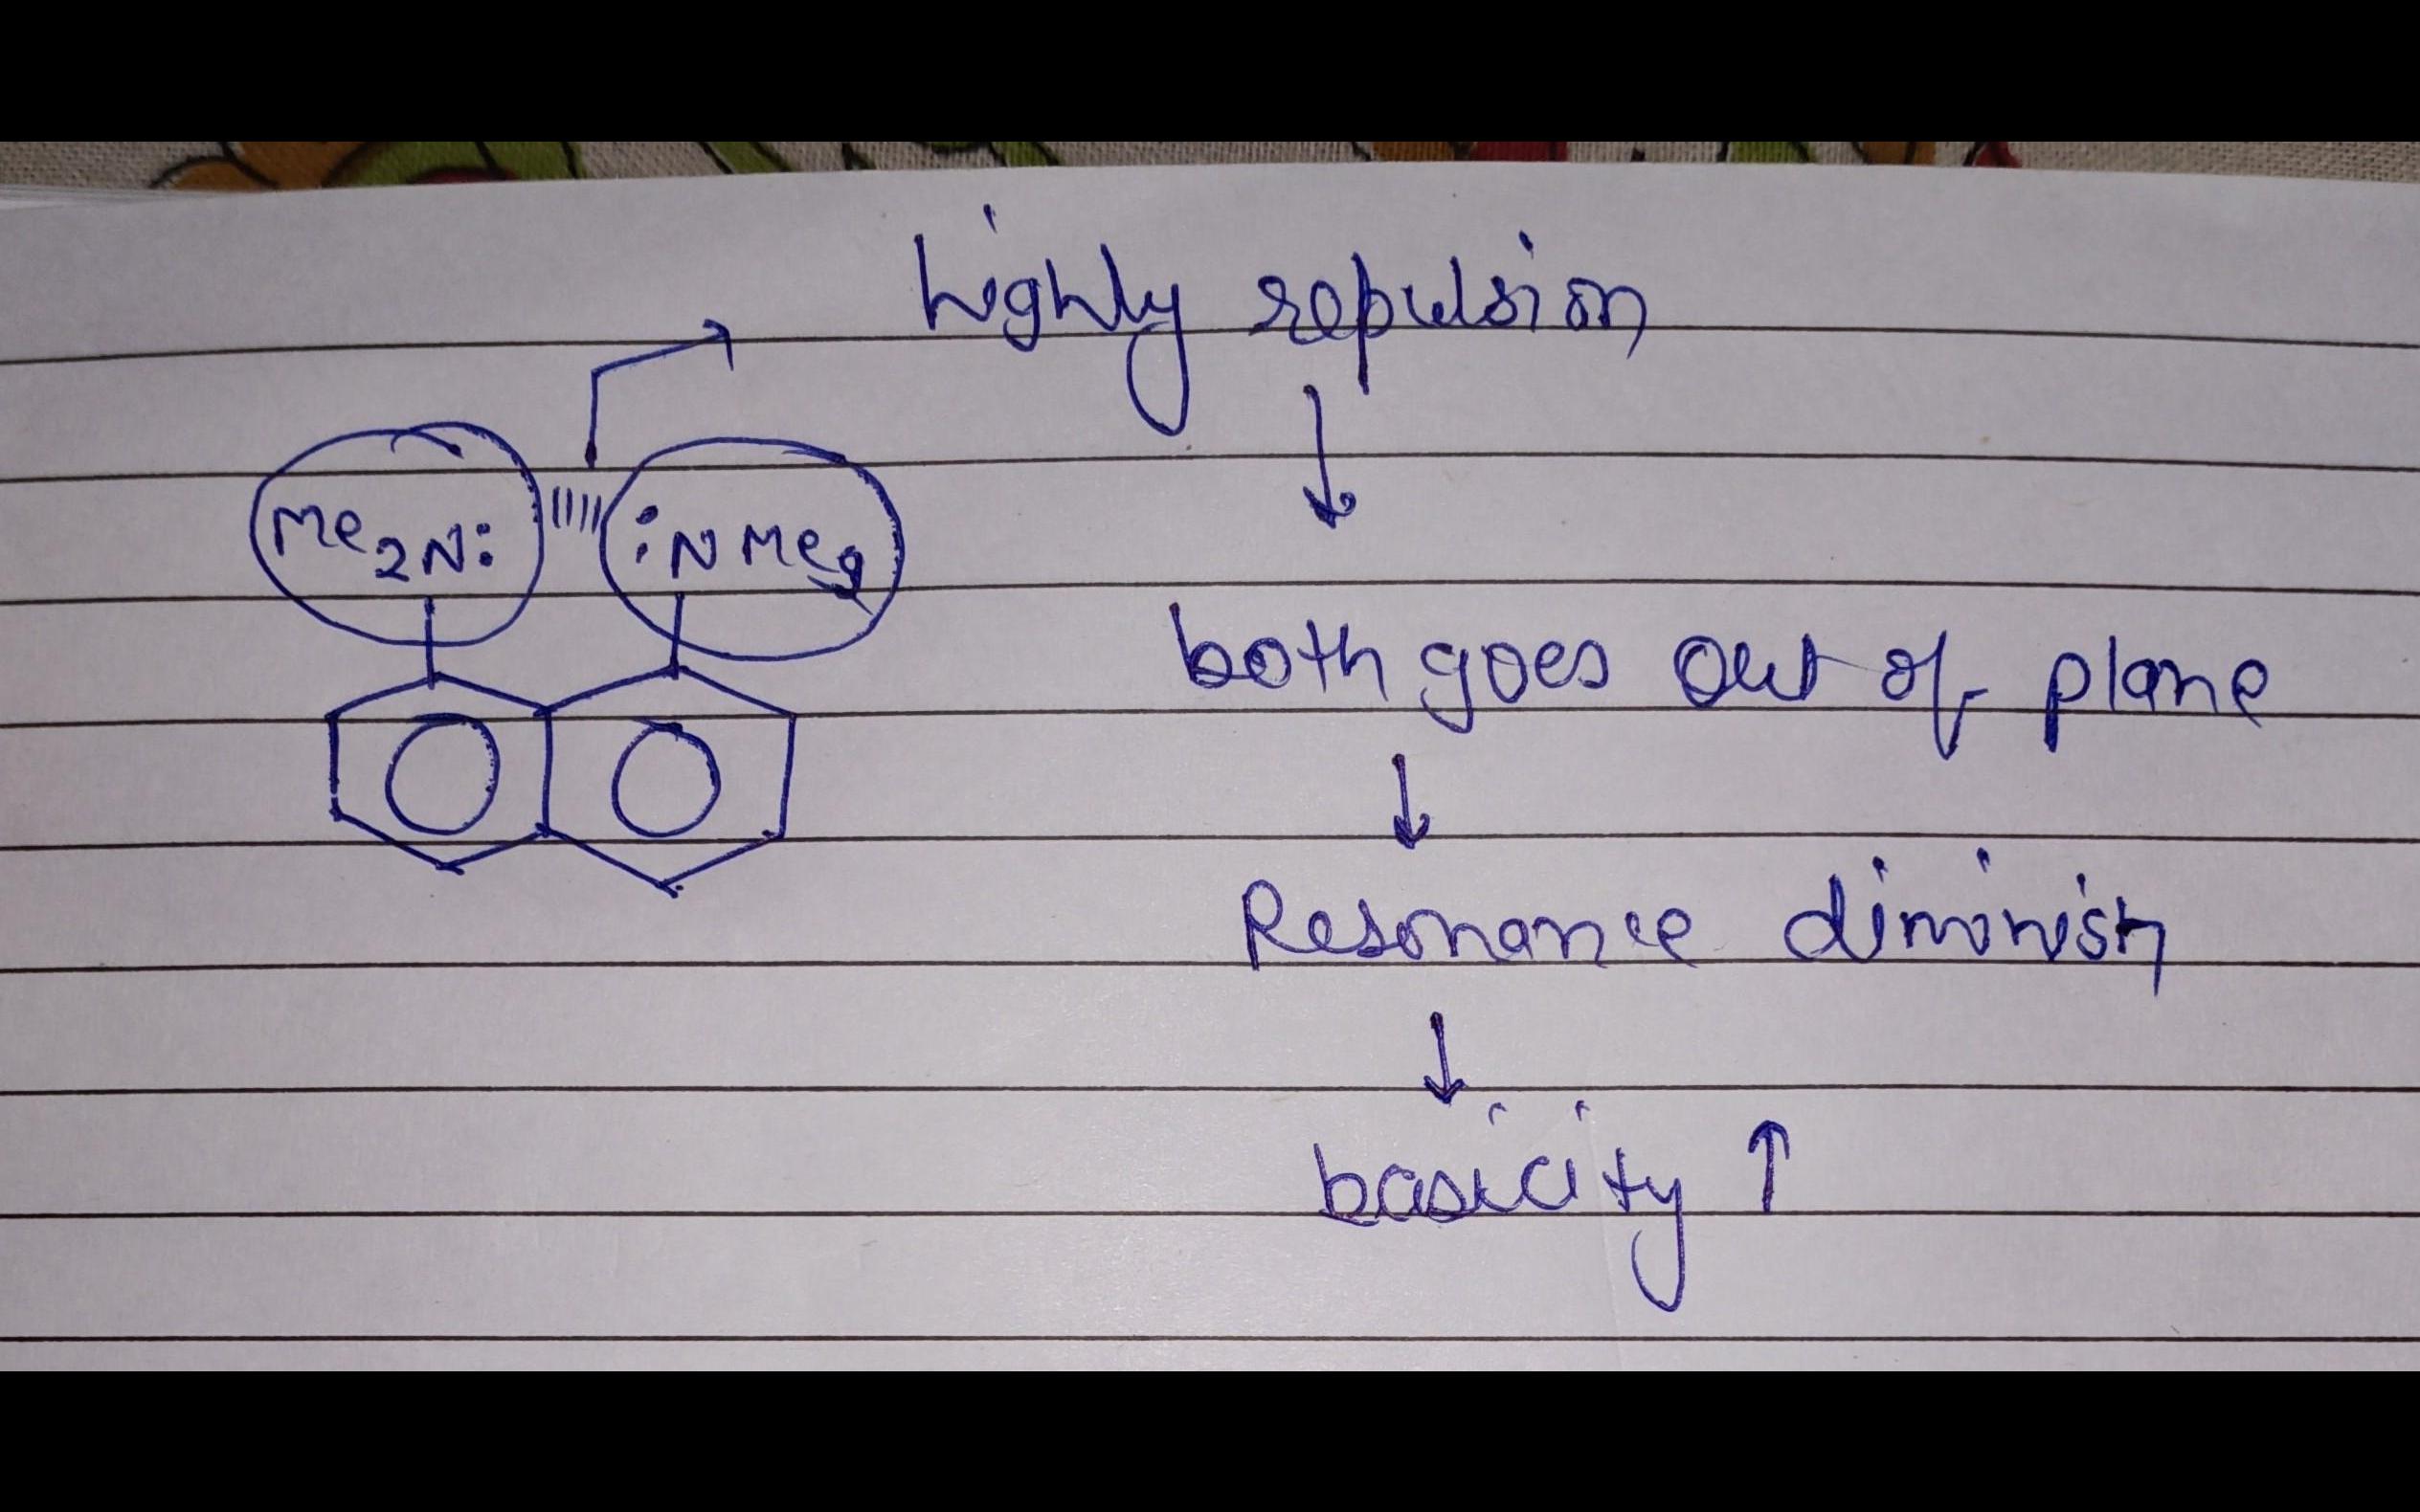 highly repulsion
Me2N: :NMe2
both goes out of plane
Resonance diminish
basicity ↑